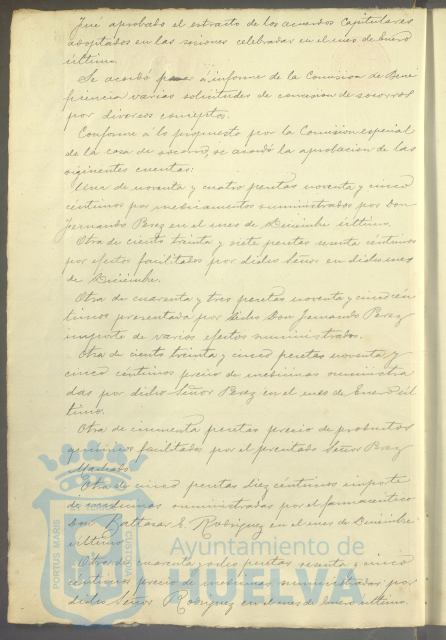 Fué aprobado el estracto de los acuerdos Capitulares
adoptados en las sesiones celebradas en el mes de Enero
último.
Se acordó pase á informe de la Comision de Bene
ficencia varias solicitudes de concesion de socorros
por diversos conceptos.
Conforme á lo propuesto por la Comision especial
de la casa de socorro, se acordó la aprobacion de las
siguientes cuentas:
Una de noventa y cuatro pesetas noventa y cinco
centimos por medicamentos suministrados por Don
Fernando Perez en el mes de Diciembre último.
Otra de ciento treinta y siete pesetas centimos
por efectos facilitados por dicho Señor en dicho mes
de Diciembre.
Otra de cuarenta y tres pesetas noventa y cinco cén
timos presentada por dicho Don Fernando Perez
importe de varios efectos suministrados.
Otra de ciento treinta y cinco pesetas noventa y
cinco céntimos precio de medicinas suministra
das por dicho Señor Perez en el mes de Enero úl
timo.
Otra de cincuenta pesetas precio de productos
quimicos facilitados por el precitado Señor Perez
Machado.
Otra de cinco pesetas diez céntimos importe
de medicinas suministradas por el farmaceutico
Don Baltasar Rodriguez en el mes de Diciembre
último.
Otra de cuarenta y dos pesetas y cinco
centimos precio de medicinas suministradas por
dicho Señor Rodriguez en el mes de Enero último.
PORTUS MARIS
CUSTODIA
Ayuntamiento de
HUELVA